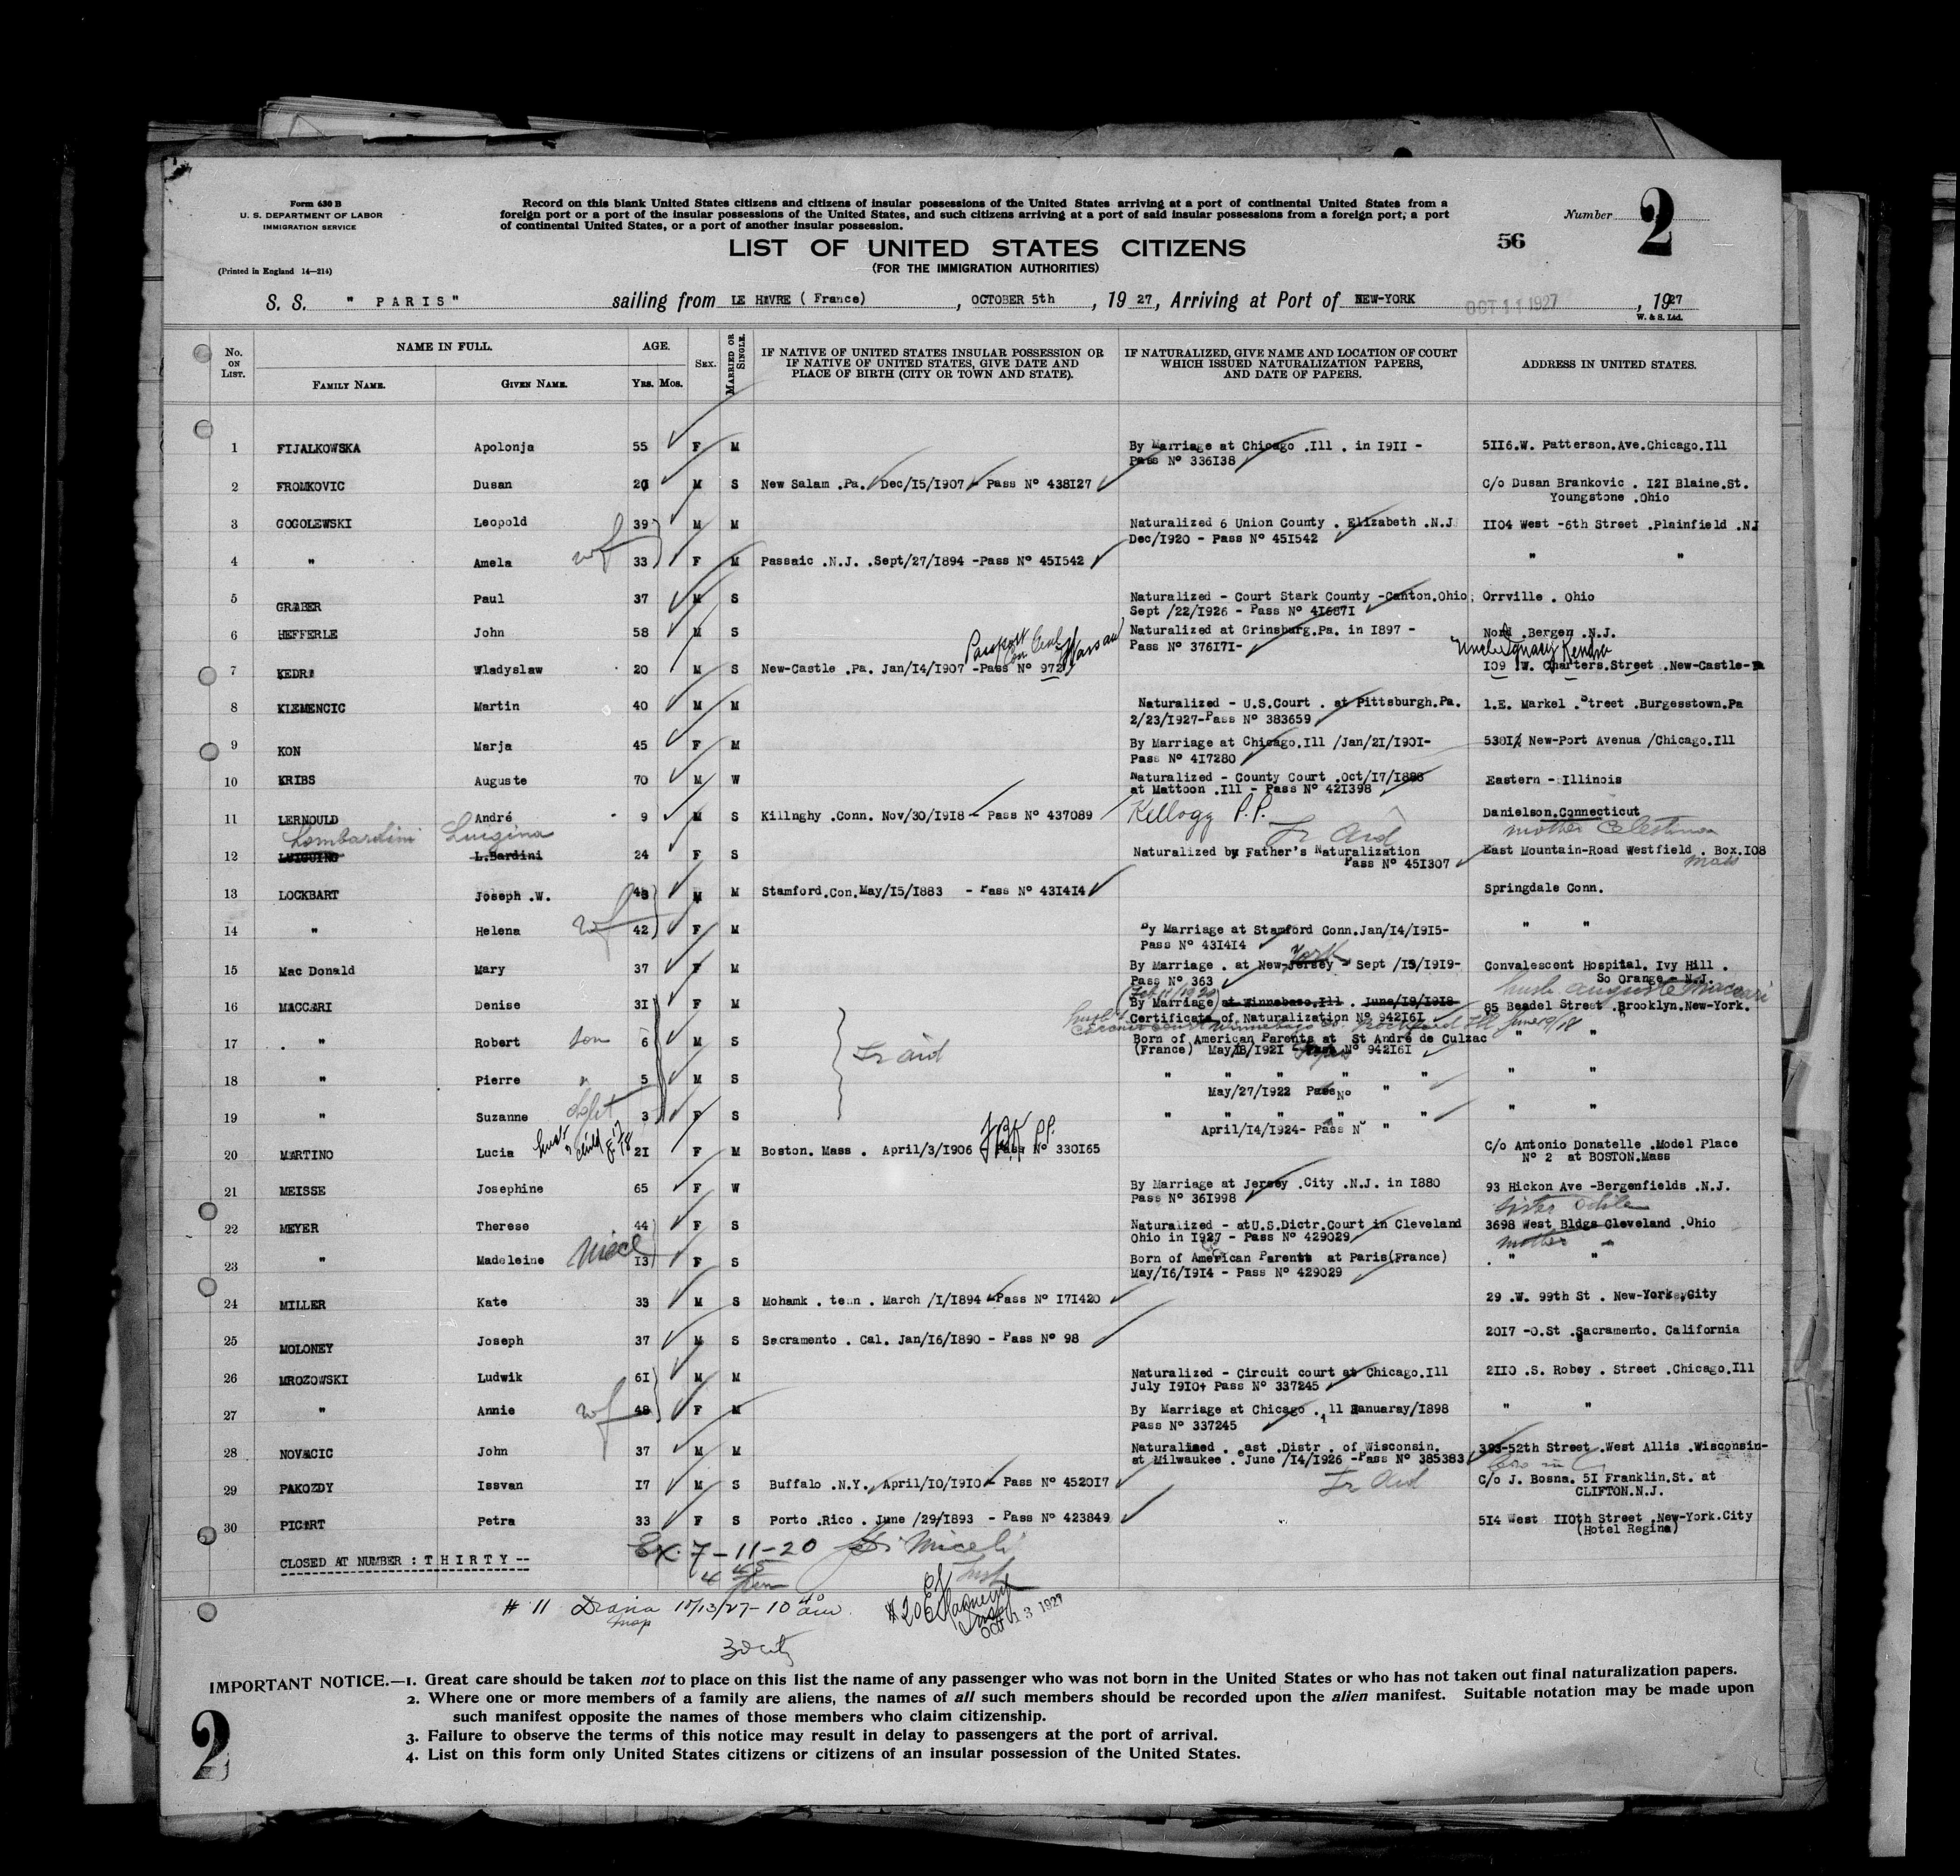 Form 630 B
U. S. DEPARTMENT OF LABOR
IMMIGRATION SERVICE
(Printed in England 14—214)
Record on this blank United States citizens and citizens of insular possessions of the United States arriving at a port of continental United States from a
foreign port or a port of the insular possessions of the United States, and such citizens arriving at a port of said insular possessions from a foreign port, a port
of continental United States, or a port of another insular possession.
Number 2
56
LIST OF UNITED STATES CITIZENS
(FOR THE IMMIGRATION AUTHORITIES)
S. S. " PARIS" sailing from LE HAVRE ( France) , OCTOBER 5th , 19 27 , Arriving at Port of NEW-YORK OCT 11 1927 , 1927
W. & S. Ltd.
No. ON LIST. NAME IN FULL. FAMILY NAME. GIVEN NAME. AGE. YRS. MOS. SEX. MARRIED OR SINGLE. IF NATIVE OF UNITED STATES INSULAR POSSESSION OR IF NATIVE OF UNITED STATES, GIVE DATE AND PLACE OF BIRTH (CITY OR TOWN AND STATE). IF NATURALIZED, GIVE NAME AND LOCATION OF COURT WHICH ISSUED NATURALIZATION PAPERS, AND DATE OF PAPERS. ADDRESS IN UNITED STATES.
1 FIJALKOWSKA Apolonja 55 F M By Marriage at Chicago .Ill . in I9II - 5II6.W. Patterson.Ave.Chicago.Ill
Pass Nº 336I38
2 FROMKOVIC Dusan 20 M S New Salam .Pa. Dec/I5/I907 - Pass Nº 438I27 C/o Dusan Brankovic . I2I Blaine.St.
Youngstone .Ohio
3 GOGOLEWSKI Leopold 39 M M Naturalized 6 Union County . Elizabeth .N.J II04 West -6th Street .Plainfield .NJ
Dec/I920 - Pass Nº 45I542
4 " Amela wf 33 F M Passaic .N.J. .Sept/27/I894 -Pass Nº 45I542 " "
5 GRABER Paul 37 M S Naturalized - Court Stark County -Canton.Ohio. Orrville . Ohio
Sept /22/I926 - Pass Nº 4I687I
6 HEFFERLE John 58 M S Naturalized at Grinsburg.Pa. in I897 - Nord .Bergen .N.J.
Pass Nº 376I7I-
Passport Warsaw Uncle Ignacy Kendra
7 KEDRA Wladyslaw 20 M S New-Castle .Pa. Jan/I4/I907 -Pass Nº 972 I09 .W. Charters.Street .New-Castle-Pa
8 KLEMENCIC Martin 40 M M Naturalized - U.S.Court . at Pittsburgh.Pa. 1.E. Markel .Street .Burgesstown.Pa
2/23/I927-Pass Nº 383659
9 KON Marja 45 F M By Marriage at Chicago.Ill /Jan/2I/I90I- 530I New-Port Avenua /Chicago.Ill
Pass Nº 4I7280
10 KRIBS Auguste 70 M W Naturalized - County Court .Oct/I7/I888 Eastern - Illinois
at Mattoon .Ill - Pass Nº 42I398
11 LERNOULD André 9 M S Killnghy .Conn. Nov/30/I9I8 - Pass Nº 437089 Kellogg P.P. Danielson.Connecticut
Lombardini Luigina Tr aid mother Celestina
12 LUIGUINO L.Bardini 24 F S Naturalized by Father's Naturalization East Mountain-Road Westfield . Box.I08
Pass Nº 45I307 Mass
13 LOCKBART Joseph .W. 43 M M Stamford.Con.May/I5/I883 - Pass Nº 43I4I4 Springdale Conn.
14 " Helena wf 42 F M By Marriage at Stamford Conn.Jan/I4/I9I5- " "
Pass Nº 43I4I4
15 Mac Donald Mary 37 F M By Marriage . at New-Jersey York Sept /I5/I9I9- Convalescent Hospital. Ivy Hill .
Pass Nº 363 So Orange - N.J.
husb. Auguste Maccari
16 MACCARI Denise 3I F M By Marriage at Winnebago.Ill . June/I9/I9I8 85 Beadel Street .Brooklyn.New-York.
Certificate of Naturalization Nº 942I6I
17 " Robert son 6 M S Tr aid Born of American Parents at St André de Culzac " "
(France) May/I8/I92I Nº 942I6I
18 " Pierre " 5 M S " " " " " "
May/27/I922 Pass Nº "
19 " Suzanne dght 3 F S " " " " " "
April/I4/I924- Pass Nº "
20 MARTINO Lucia 2I F M Boston. Mass . April/3/I906 - Pass Nº 330I65 P.P. C/o Antonio Donatelle .Model Place
Nº 2 at BOSTON.Mass
21 MEISSE Josephine 65 F W By Marriage at Jersey .City .N.J. in I880 93 Hickon Ave -Bergenfields .N.J.
Pass Nº 36I998 sister Odile
22 MEYER Therese 44 F S Naturalized - atU.S.Dictr.Court in Cleveland 3698 West Bldgs Cleveland .Ohio
Ohio in I927 - Pass Nº 429029 mother "
23 " Madeleine Niece I3 F S Born of American Parents at Paris(France) " "
May/I6/I9I4 - Pass Nº 429029
24 MILLER Kate 33 M S Mohamk . tenn . March /I/I894 -Pass Nº I7I420 29 .W. 99th St . New-York.City
25 MOLONEY Joseph 37 M S Sacramento . Cal. Jan/I6/I890 - Pass Nº 98 20I7 -O.St .Sacramento. California
26 MROZOWSKI Ludwik 6I M M Naturalized - Circuit court at Chicago.Ill 2II0 .S. Robey . Street .Chicago.Ill
July I9I0+ Pass Nº 337245
27 " Annie wf 48 F M By Marriage at Chicago . ill Januaray/I898 " "
Pass Nº 337245
28 NOVACIC John 37 M M Naturalized . east .Distr . of Wisconsin. 393-52th Street .West Allis .Wisconsin-
at Milwaukee . June /I4/I926 -Pass Nº 385383
29 PAKOZDY Issvan I7 M S Buffalo .N.Y. April/I0/I9I0 - Pass Nº 4520I7 Tr aid C/o J. Bosna. 5I Franklin.St. at
CLIFTON.N.J.
30 PICART Petra 33 F S Porto .Rico . June /29/I893 - Pass Nº 423849 5I4 West II0th Street .New-York.City
(Hotel Regina)
CLOSED AT NUMBER : T H I R T Y --
Ex. 7-11-20 Di Miceli
Insp
# 11 10/13/27-10 am
Insp
#20
OCT 13 1927
IMPORTANT NOTICE.—1. Great care should be taken not to place on this list the name of any passenger who was not born in the United States or who has not taken out final naturalization papers.
2. Where one or more members of a family are aliens, the names of all such members should be recorded upon the alien manifest. Suitable notation may be made upon
such manifest opposite the names of those members who claim citizenship.
3. Failure to observe the terms of this notice may result in delay to passengers at the port of arrival.
4. List on this form only United States citizens or citizens of an insular possession of the United States.
2